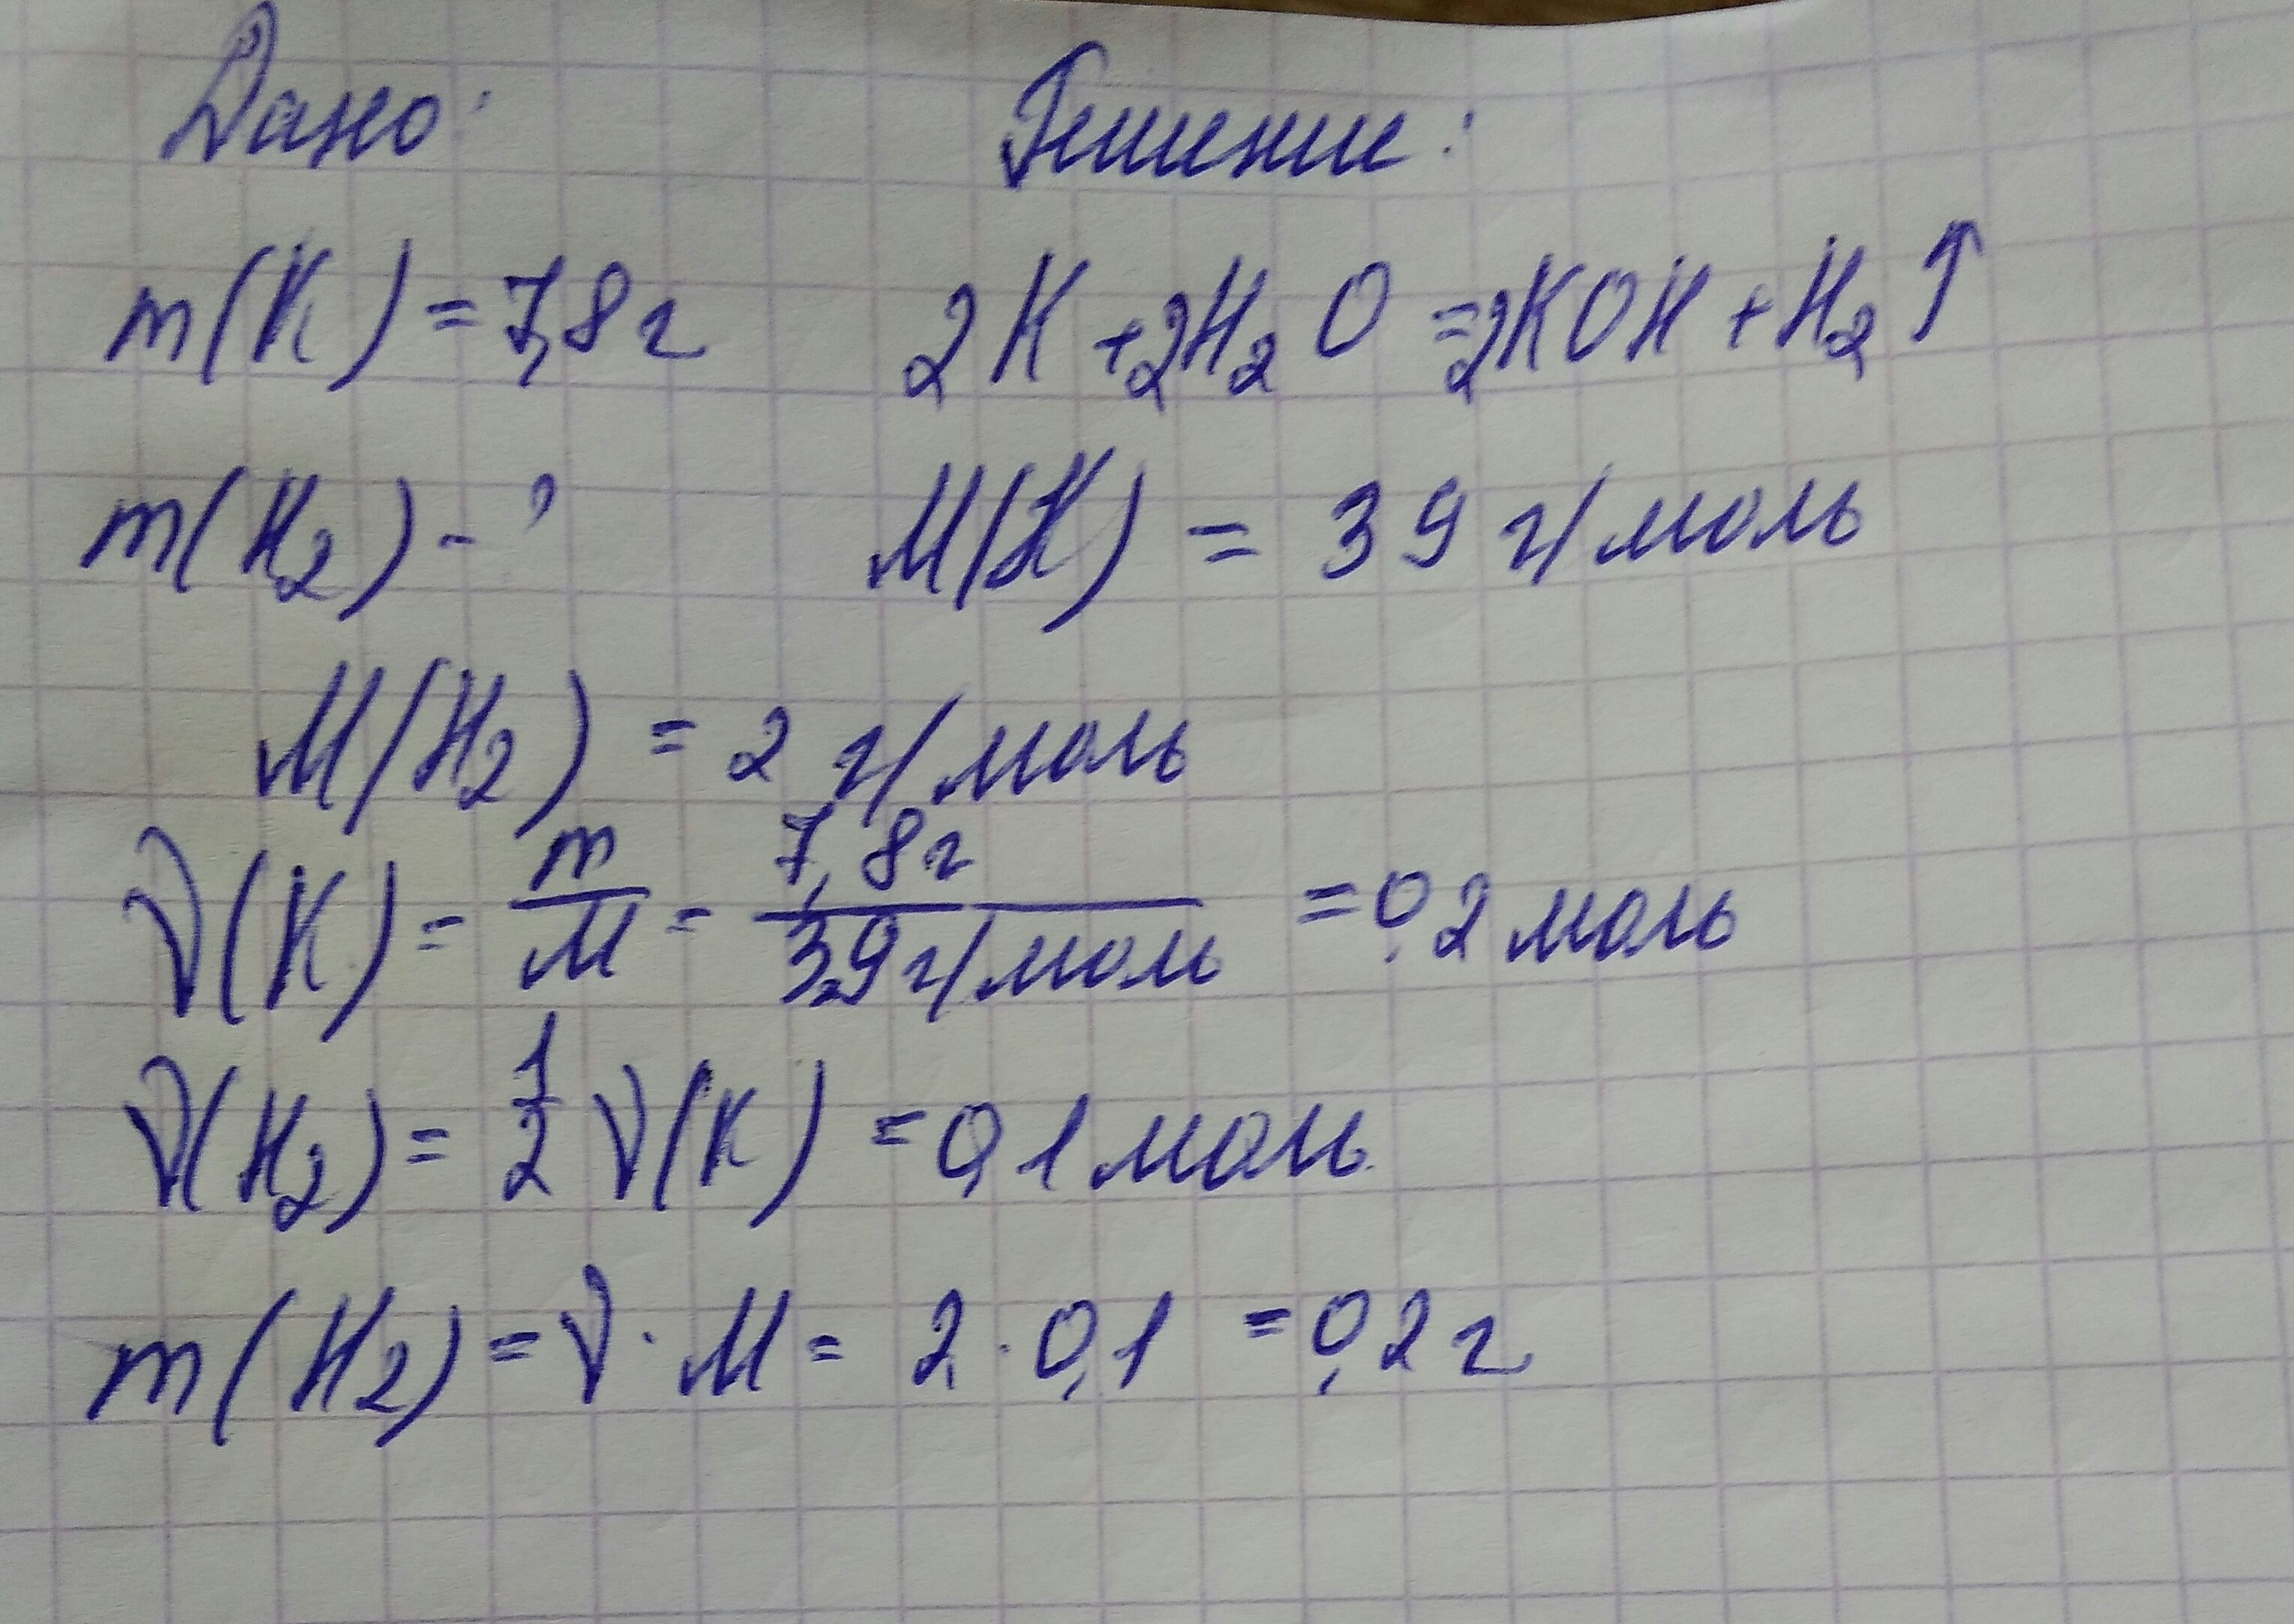 Дано: Решение:
m(K) = 7,8 г 2K + 2H₂O = 2KOH + H₂↑
m(H₂) - ? M(K) = 39 г/моль
M(H₂) = 2 г/моль
ν(K) = m/M = 7,8 г / 39 г/моль = 0,2 моль
ν(H₂) = 1/2 ν(K) = 0,1 моль
m(H₂) = ν · M = 2 · 0,1 = 0,2 г